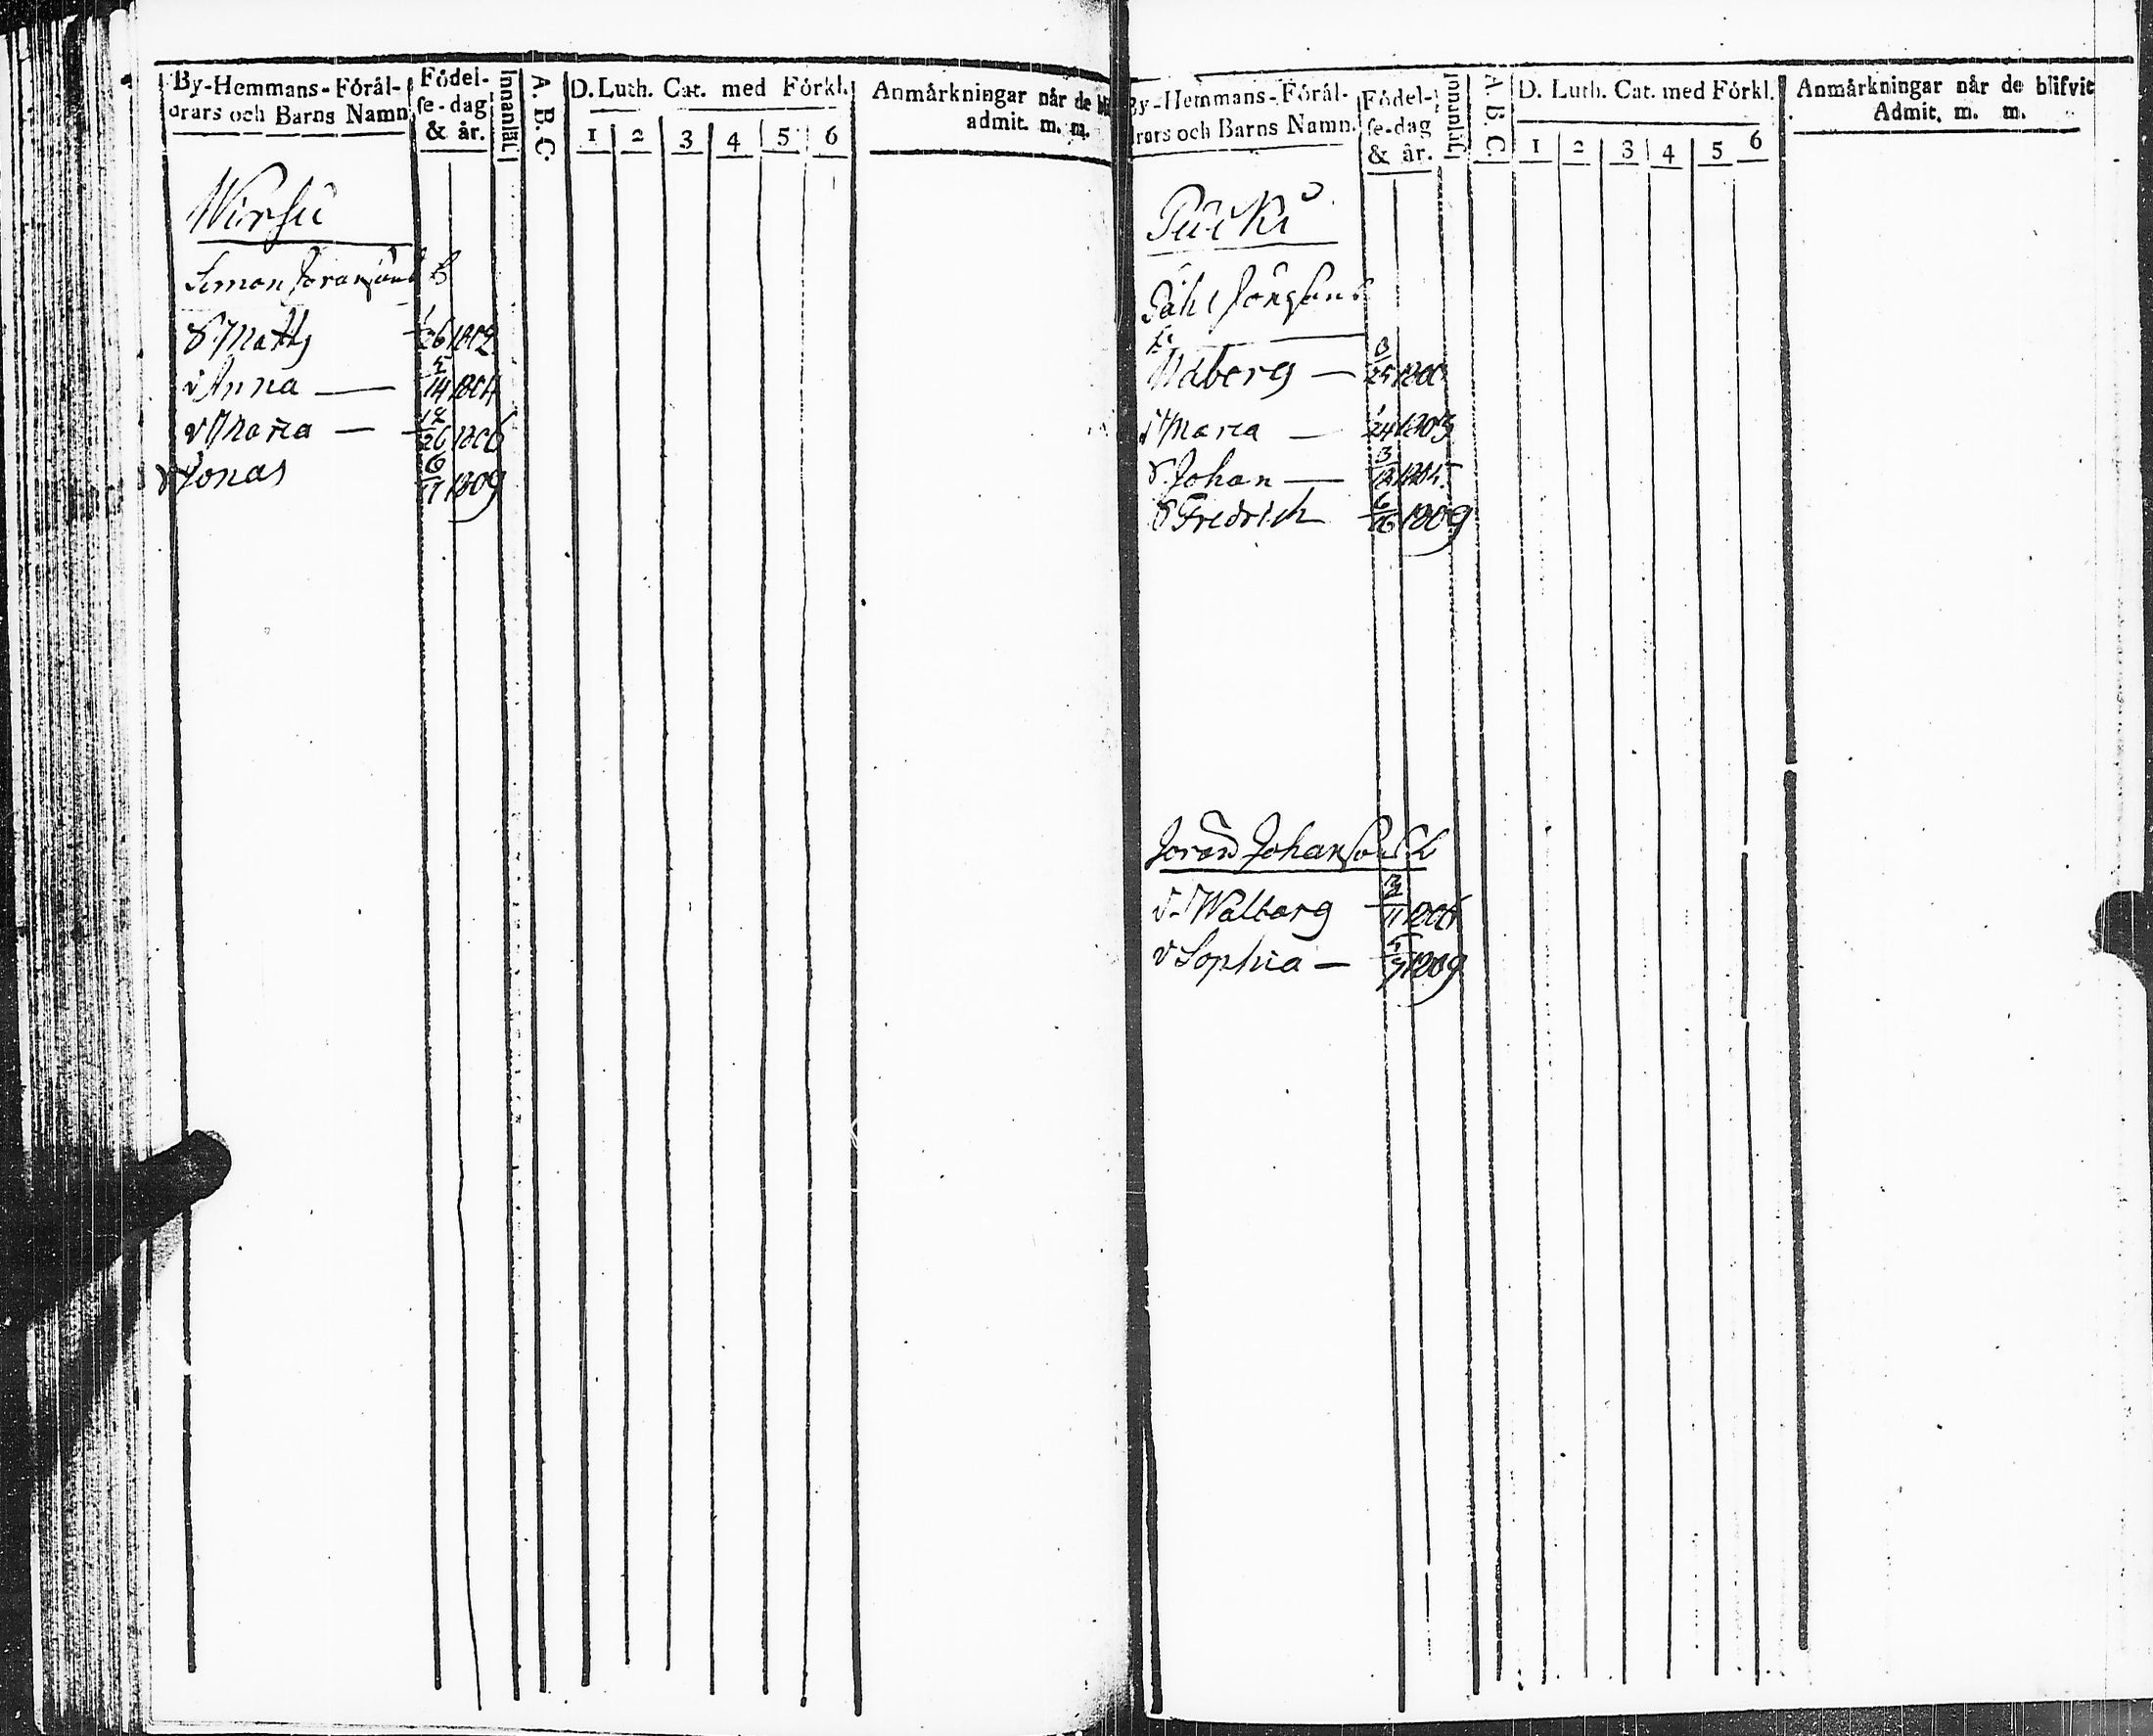 By-Hemmans-Förål-
drars och Barns Namn
Födel-
se-dag
& år.
Innanläs.
A. B. C.
D. Luth. Cat. med Förkl.
1 2 3 4 5 6
Anmårkningar når de
admit. m. m.
Wirsu
Simon Joransons B
Matts 1/26 1802
Anna — 5/14 1804
Maria — 12/26 1806
Jonas 6/11 1809
By-Hemmans-Förål-
drars och Barns Namn.
Födel-
se-dag
& år.
A. B. C.
D. Luth. Cat. med Förkl.
1 2 3 4 5 6
Anmårkningar når de blifvit
Admit. m. m.
Påhl
Walberg —
Maria — 1/24 1803
Johan — 3/12 1805
Fredrich 6/16 1809
Johansons
Walborg 1806
Sophia — 1809